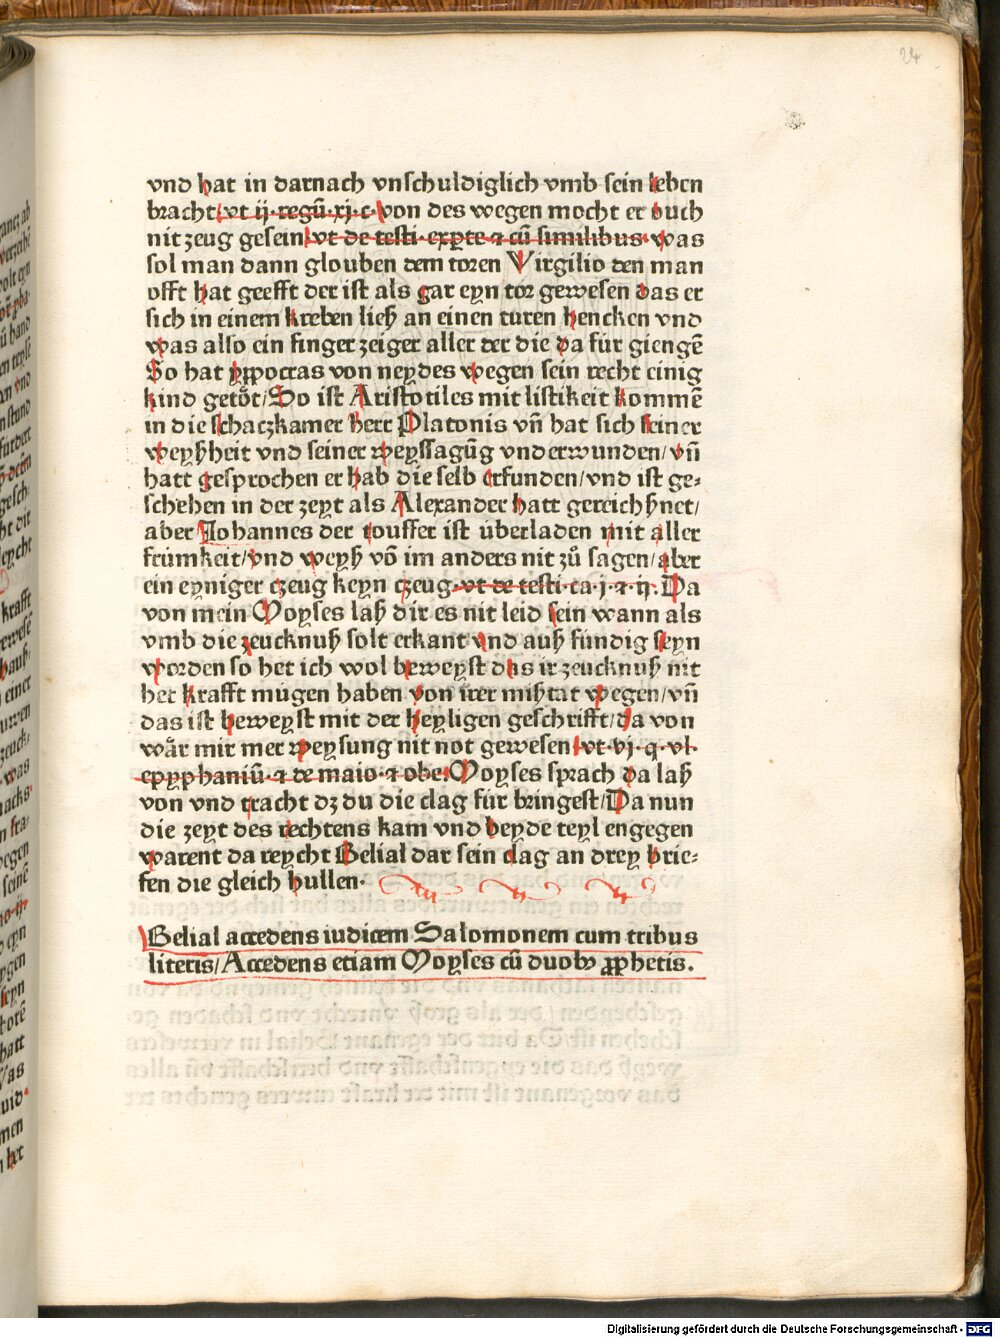 24
vnd hat in darnach vnschuldiglich vmb sein leben
bracht/vt ij·regū·xj·c·von des wegen mocht er ouch
nit zeug gesein/vt de testi·exp̲te·⁊ cū similibus·was
sol man dann glouben dem toren Virgilio den man
offt hat geefft der ist als gar eyn tor gewesen das er
sich in einem kreben ließ an einen turen hencken vnd
was also ein finger zeiger aller der die da für giengē
So hat ypocras von neydes wegen sein recht einig
kind getöt/So ist Aristotiles mit listikeit kommē
in die schaczkamer herr Platonis vn̄ hat sich seiner
weyßheit vnd seiner weyssagūg vnderwunden/vn̄
hatt gesprochen er hab die selb erfunden/vnd ist ge⸗
schehen in der zeyt als Alexander hatt gereichßnet/
aber Johannes der touffer ist überladen mit aller
frümkeit/vnd weyß vō im anders nit zů sagen/aber
ein eyniger czeug keyn czeug·vt de testi·ca·j·⁊·ij·Da
von mein Moyses laß dir es nit leid sein wann als
vmb die zeucknuß solt erkant vnd auß fündig seyn
worden so het ich wol beweyst das ir zeucknuß nit
het krafft mügen haben von irer mißtat wegen/vn̄
das ist beweyst mit der heyligen geschrifft/da von
wår mir mer weysung nit not gewesen/vt·vj·q·vl·
epyphaniū·⁊ de maio·⁊ obe·Moyses sprach da laß
von vnd tracht dz du die clag für bringest/Da nun
die zeyt des rechtens kam vnd beyde teyl engegen
warent da reycht Belial dar sein clag an drey brie⸗
fen die gleich hullen·
Belial accedens iudicem Salomonem cum tribus
literis/Accedens etiam Moyses cū duobꝫ ꝓphetis.
Digitalisierung gefördert durch die Deutsche Forschungsgemeinschaft - DFG